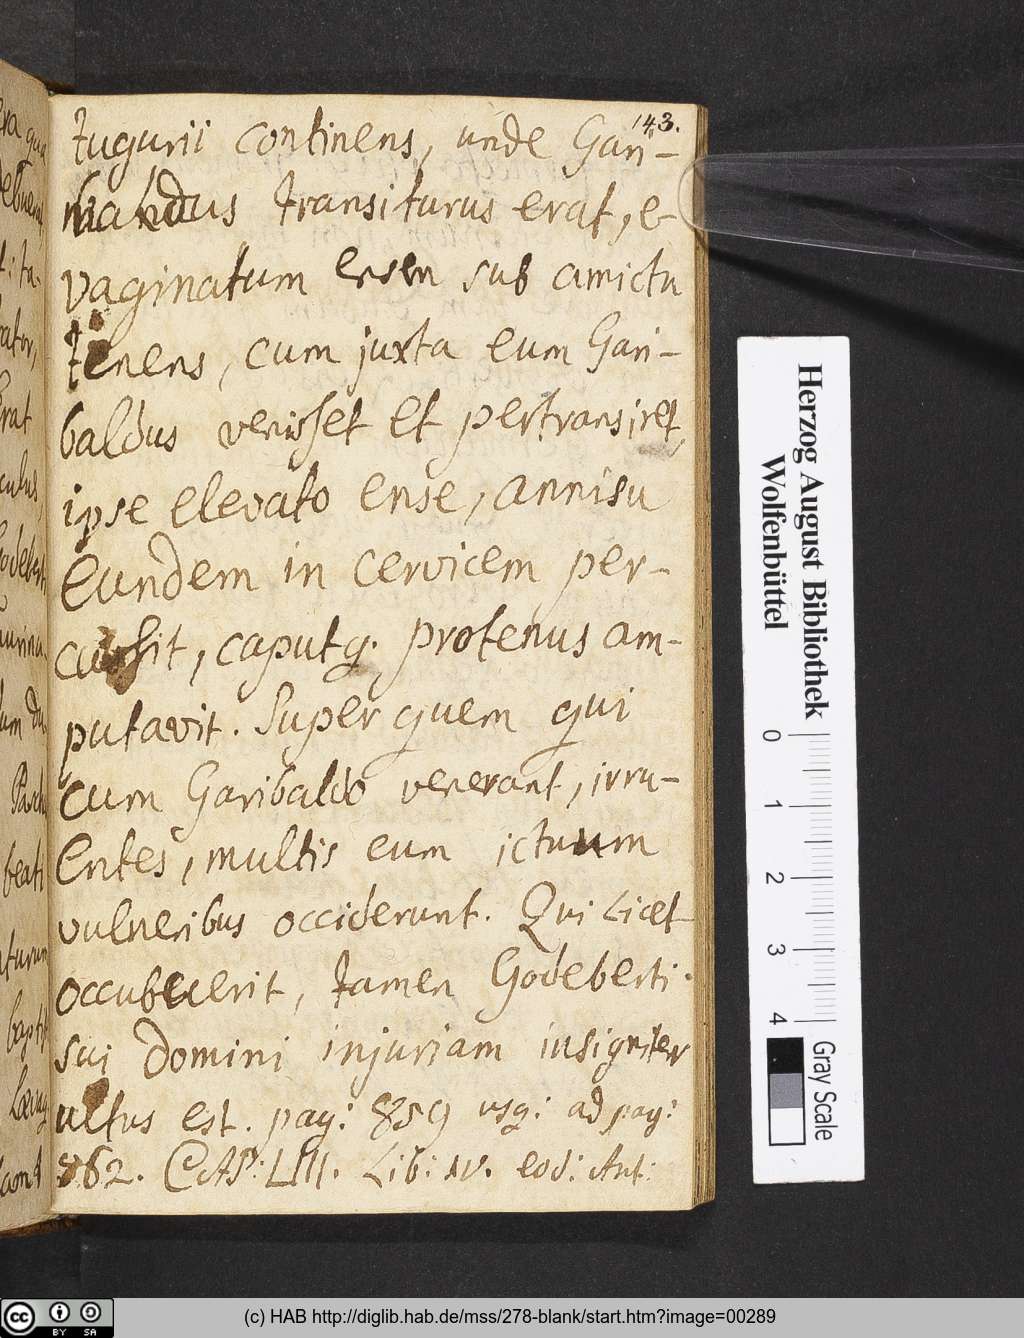 143.
tugurii continens, unde Gari-
baldus transiturus erat, e-
vaginatum ensem sub amictu
tenens, cum juxta eum Gari-
baldus venisset et pertransiret,
ipse elevato ense, annisu
eundem in cervicem per-
cussit, caputq. protenus am-
putavit. Super quem qui
cum Garibaldo venerant, irru-
entes, multis eum ictuum
vulneribus occiderunt. Qui licet
occubuerit, tamen Godeberti
sui domini injuriam insigniter
ultus est. pag: 859 usq: ad pag:
862. CAP: LIII. Lib: IV. eod: Aut:
ra qua
ator,
erat
culus,
Godebert
um du
beati
nturum
baptis
Herzog August Bibliothek
Wolfenbüttel
0 1 2 3 4
Gray Scale
cc BY SA
(c) HAB http://diglib.hab.de/mss/278-blank/start.htm?image=00289